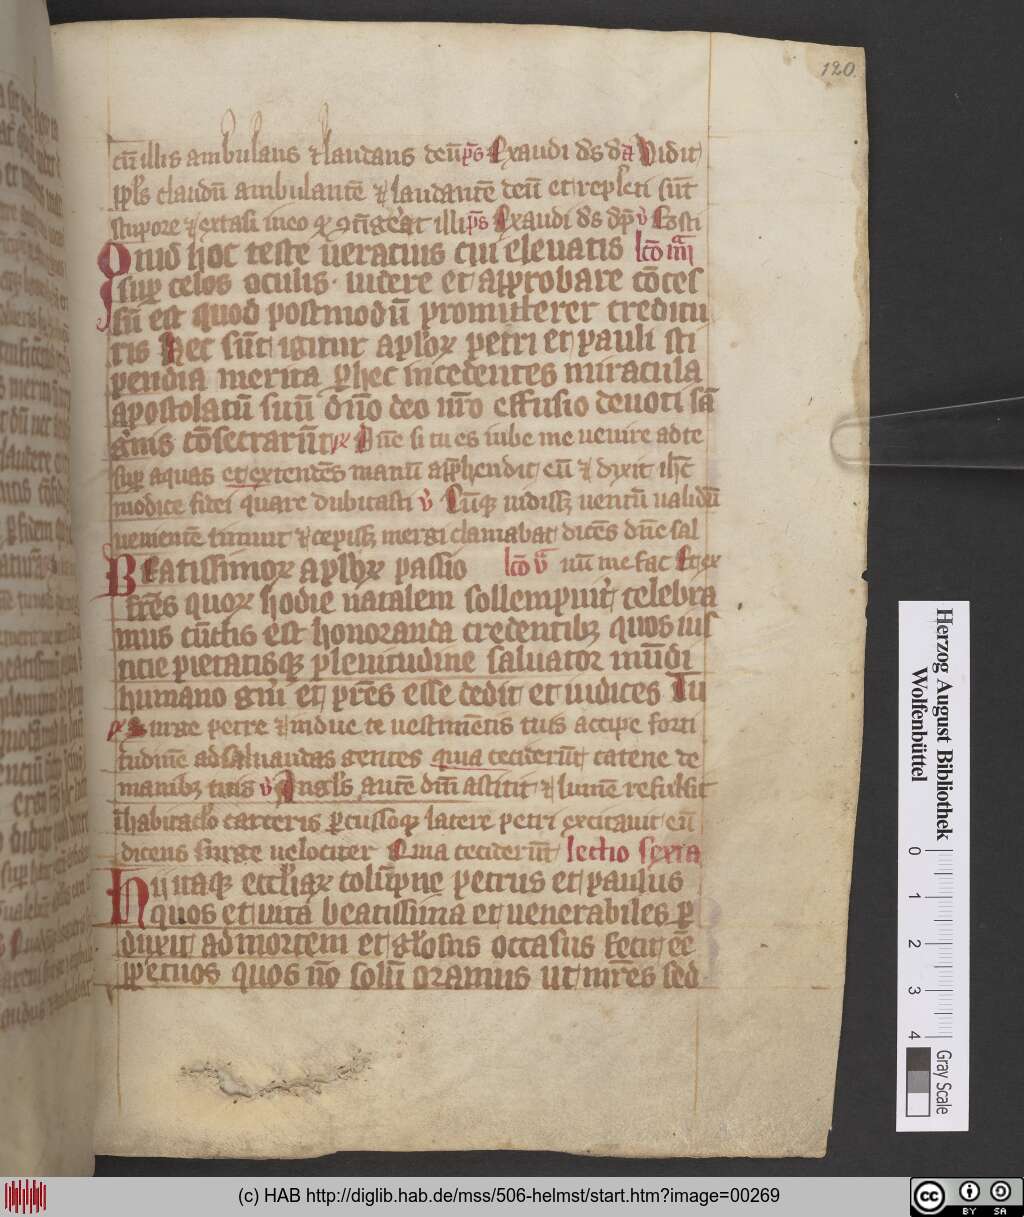 120.
cū illis ambulans ⁊ laudans deū p̄s Exaudi ds dā Vidit
ppl's claudū ambulantē ⁊ laudantē deū et repleti sūt
stupore ⁊ extasi in eo qꝫ ꝯtīgerat illi p̄s Exaudi ds dp̄ v̄ Eosti
Quid hoc teste veratius cui elevatis lcō iiii
sup celos oculis · videre et approbare cōces
sū est quod postmodū promitterer creditu
ris Hec sūt igitur aplōꝝ petri et pauli sti
pendia merita p hec incedentes miracula
apostolatū suū dn̄o deo nr̄o effusio devoti sā
gnis cōsecrarūt ꝶ Dn̄e si tu es iube me venire ad te
sup aquas et extendēs manū apphendit eū ⁊ dixit ihc̄
modice fidei quare dubitasti v̄ Cūqꝫ vidissꝫ ventū validū
venientē timuit ⁊ cepissꝫ mergi clamabat dicēs dn̄e sal
Beatissimoꝝ aplōꝝ passio lcō v̄ uū me fac Et ex
fr̄es quoꝝ hodie natalem sollempnit' celebra
mus cūctis est honoranda credentibꝫ quos ius
ticie pietatisqꝫ plenitudine salvator mūdi
humano gn̄i et pr̄es esse dedit et iudices Tu
ꝶ Surge petre ⁊ indue te vestimētis tuis accipe forti
tudinē ad salvandas gentes quia ceciderūt catene de
manibꝫ tuis v̄ Angl's autē dn̄i astitit ⁊ lumē refulsit
ī habitaclo carceris pcussoqꝫ latere petri excitavit eū
dicens surge velociter Quia ceciderūt lectio sexta
Hii itaqꝫ eccl'iaꝝ colūpne petrus et paulus
quos et vita beatissima et venerabiles p
duxit ad mortem et gl'osus occasus fecit eē
ppetuos quos nō solū oramus ut nr̄es sed
Herzog August Bibliothek
Wolfenbüttel
0 1 2 3 4
Gray Scale
(c) HAB http://diglib.hab.de/mss/506-helmst/start.htm?image=00269
cc BY SA